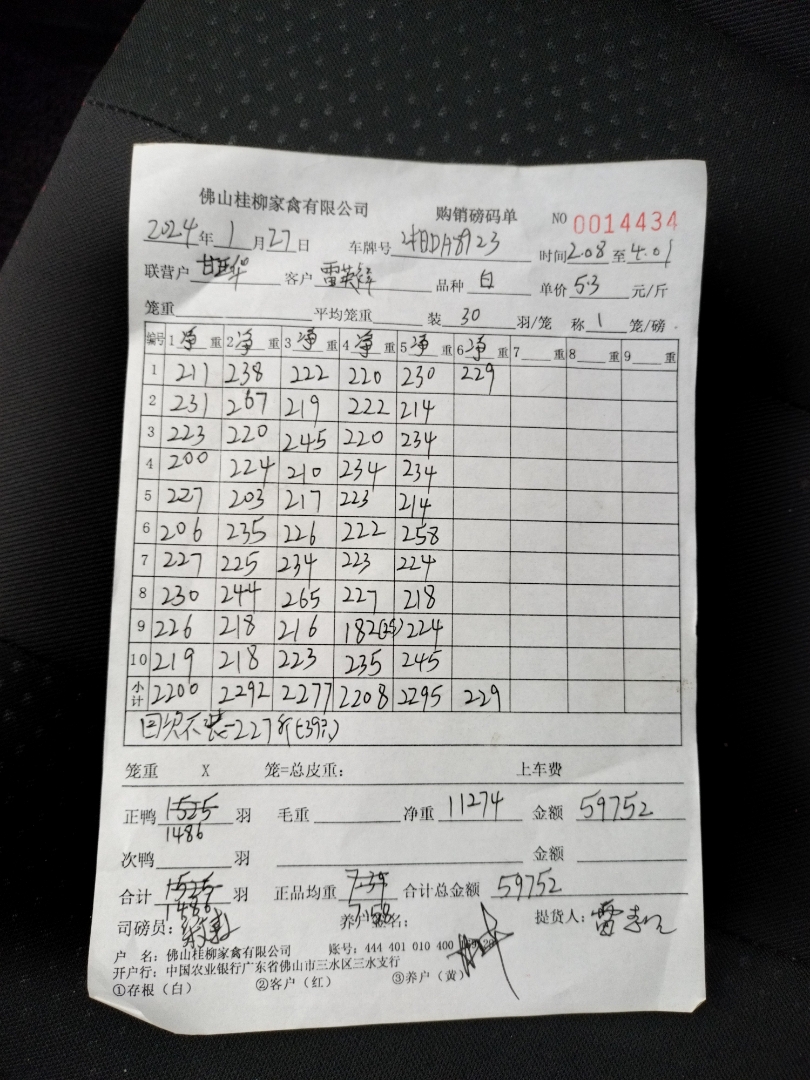 佛山桂柳家禽有限公司 购销磅码单 NO 0014434
2024年1月27日 车牌号 湘DA8923 时间2.08至4.01
联营户 客户 雷英 品种 白 单价 5.3 元/斤
笼重 平均笼重 装 30 羽/笼 称 1 笼/磅
编号 1净重 2净重 3净重 4净重 5净重 6净重 7重 8重 9重
1 211 238 222 220 230 229
2 231 267 219 222 214
3 223 220 245 220 234
4 200 224 210 234 234
5 227 203 217 223 214
6 206 235 226 222 258
7 227 225 234 223 224
8 230 244 265 227 218
9 226 218 216 182(25) 224
10 219 218 223 235 245
小计 2200 2292 2277 2208 2295 229
不装-227斤(-39只)
笼重 X 笼=总皮重: 上车费
正鸭 1525 羽 毛重 净重 11274 金额 59752
1486
次鸭 羽 金额
合计 1525 羽 正品均重 7.39 合计总金额 59752
1486 7.58
司磅员: 养户签名: 提货人: 雷
户 名: 佛山桂柳家禽有限公司 账号: 444 401 010 400
开户行: 中国农业银行广东省佛山市三水区三水支行
①存根(白) ②客户(红) ③养户(黄)